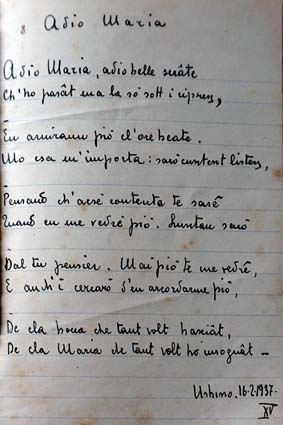 8 Adio Maria
Adio Maria, adio belle serâte
Ch'ho pasât ma la só sott i cipress,
En arniranu piò cl'ore beate.
Mo csa m'importa: sarò cuntent listess,
Pensand ch'acsé contenta te sarê
Quand en me vedrê piò. Luntan sarò
Dal tu pensier. Mai piò te me vedrê,
E anch'i cercarò d'en arcordarme piò,
De cla boca che tant volt ho baciât,
De cla Maria che tant volt ho insognât –
Urbino. 16.2.1937.
XV